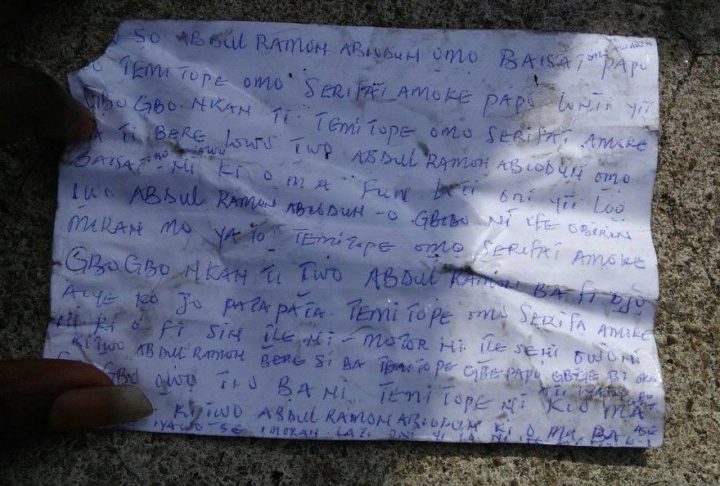 SO ABDUL RAMON ABIODUN OMO BAISAT OMO AWAWN
TEMITOPE OMO SERIFAT AMOKE PAPO LONII YII
GBOGBO NKAN TI TEMITOPE OMO SERIFAT AMOKE
BA TI BERE LOWO IWO ABDUL RAMON ABIODUN OMO
BAISAT NI KI O MA FUN LATI ONI YII LOO
IWO ABDUL RAMON ABIODUN O GBODO NI IFE OBIRIN
MIRAN MO YATO TEMITOPE OMO SERIFAT AMOKE
GBOGBO NKAN TI IWO ABDUL RAMON BA FI OJU
AIYE KO JO PATAPATA TEMITOPE OMO SERIFA AMOKE
NI KI O FI SIN ILE NI-MOTOR NI ILESE NI OWO NI
KI IWO ABDUL RAMON BERE SI BA TEMITOPE GBE PAPO
GBO OWO IWO BA NI TEMITOPE NI KI O MA
KI IWO ABDUL RAMON ABIODUN KI O MA BA ASE
IYAWO SE LATI ONI